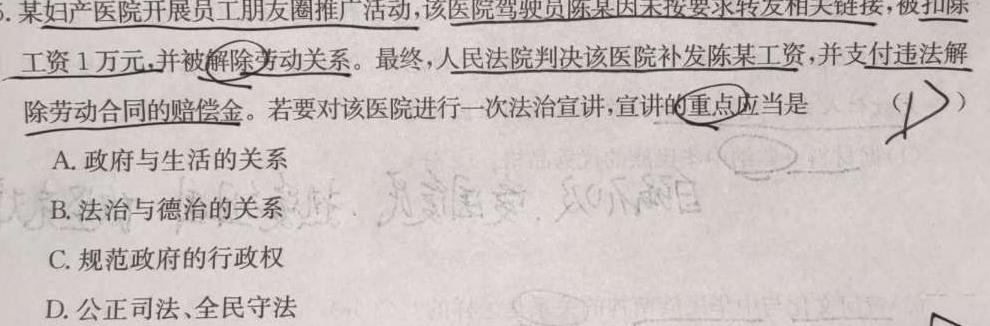 5. 某妇产医院开展员工朋友圈推广活动,该医院驾驶员陈某因未按要求转发相关链接,被扣除
工资1万元,并被解除劳动关系。最终,人民法院判决该医院补发陈某工资,并支付违法解
除劳动合同的赔偿金。若要对该医院进行一次法治宣讲,宣讲的重点应当是 ( D )
A. 政府与生活的关系
B. 法治与德治的关系
C. 规范政府的行政权
D. 公正司法、全民守法